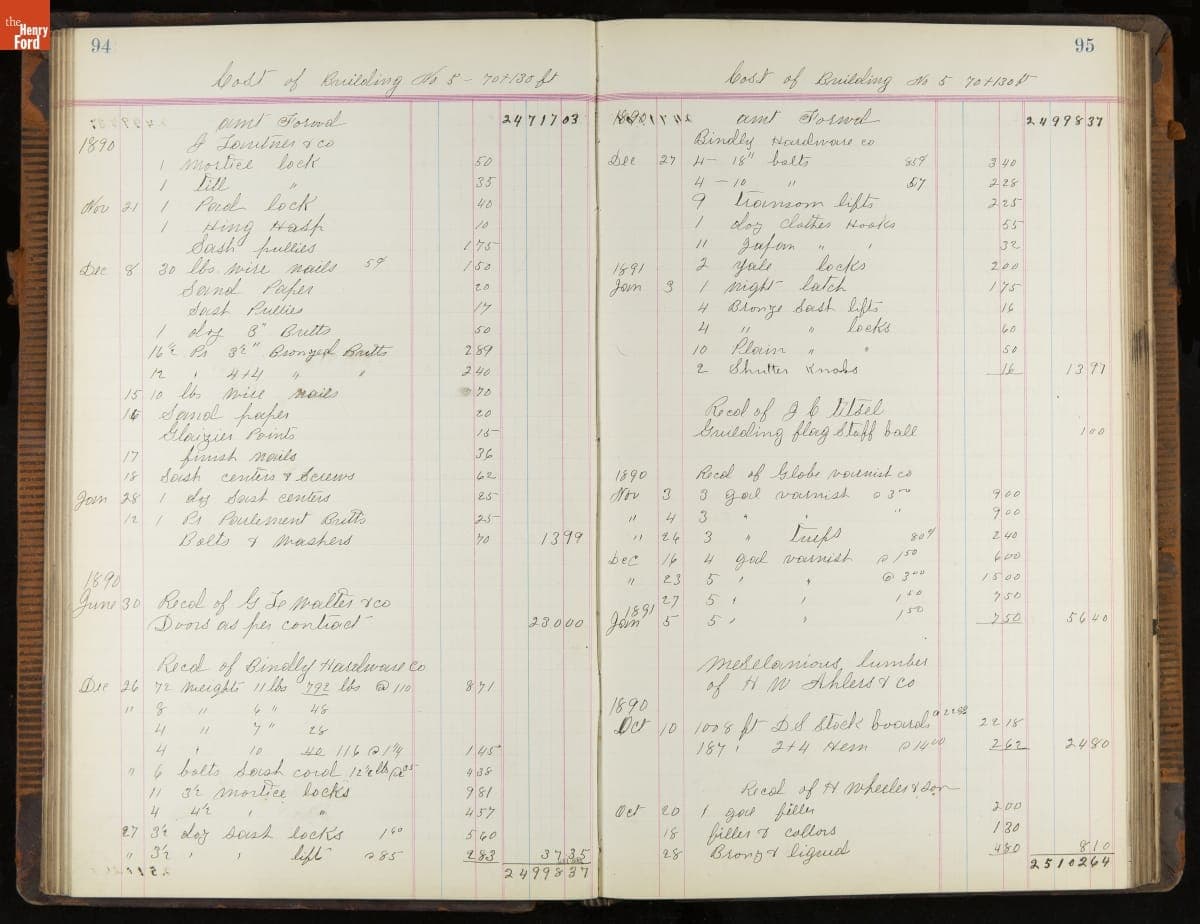 the
Henry
Ford
94
Cost of Building No 5 - 70+130 ft
amt Forwd 2471703
1890 & co
1 Mortice lock 50
1 till " 35
Nov 21 1 Pad lock 40
1 Hing Hasp 10
Sash pullies 175
Dec 8 30 lbs wire nails 5¢ 150
Sand Paper 20
Sash Pullies 17
1 doz 3" Butts 50
16½ Pr 3½" Bronzed Butts 289
12 " 4+4 " " 240
15 10 lbs wire nails 70
16 Sand paper 20
Glaizier Points 15
17 finish nails 36
18 Sash centers & Screws 62
Jan 28 1 doz Sast centers 25
12 1 Pr Parlement Butts 25
Bolts & Washers 70 1399
1890
June 30 Recd of G Le Walter & co
Doors as per contract 23000
Recd of Bindly Hardware Co
Dec 26 72 Weights 11 lbs 792 lbs @ 110 871
" 8 " 6 " 48
4 " 7" 28
4 " 10 40 116 @ 1¼ 145
" 6 bolts Sash cord 12½ lbs @ 35 438
11 3½ Mortice locks 981
4 4½ " " 457
27 3½ doz Sash locks 160 560
" 3½ " " lift @ 85 283 3735
2499837
95
Cost of Building No 5 70+130 ft
1890 amt Forwd 2499837
Bindly Hardware co
Dec 27 4 - 18" bolts 85¢ 340
4 - 10 " 57 228
9 transom lifts 225
1 doz Clothes Hooks 55
11 Japan " " 32
1891 2 Yale locks 200
Jan 3 1 night latch 175
4 Bronze Sast lifts 16
4 " " locks 60
10 Plain " " 50
2 Shutter Knobs 16 1397
Recd of J C titsel
Guielding flag Staff ball 100
1890 Recd of Globe varnist co
Nov 3 3 gal varnist @ 300 900
" 4 3 " " " 900
" 26 3 " turps 80¢ 240
Dec 16 4 gal varnist @ 150 600
" 23 5 " " @ 300 1500
27 5 " " 150 750
1891
Jan 5 5 " " 150 750 5640
Meselanious lumber
of H W Ahlers & co
1890
Oct 10 1008 ft D.S Stock boards 2218
187 " 2+4 Hem @ 1400 262 2480
Recd of H Wheeler & son
Oct 20 1 gal filler 200
18 filler & collors 130
28 Bronz & liquid 480 810
2510264